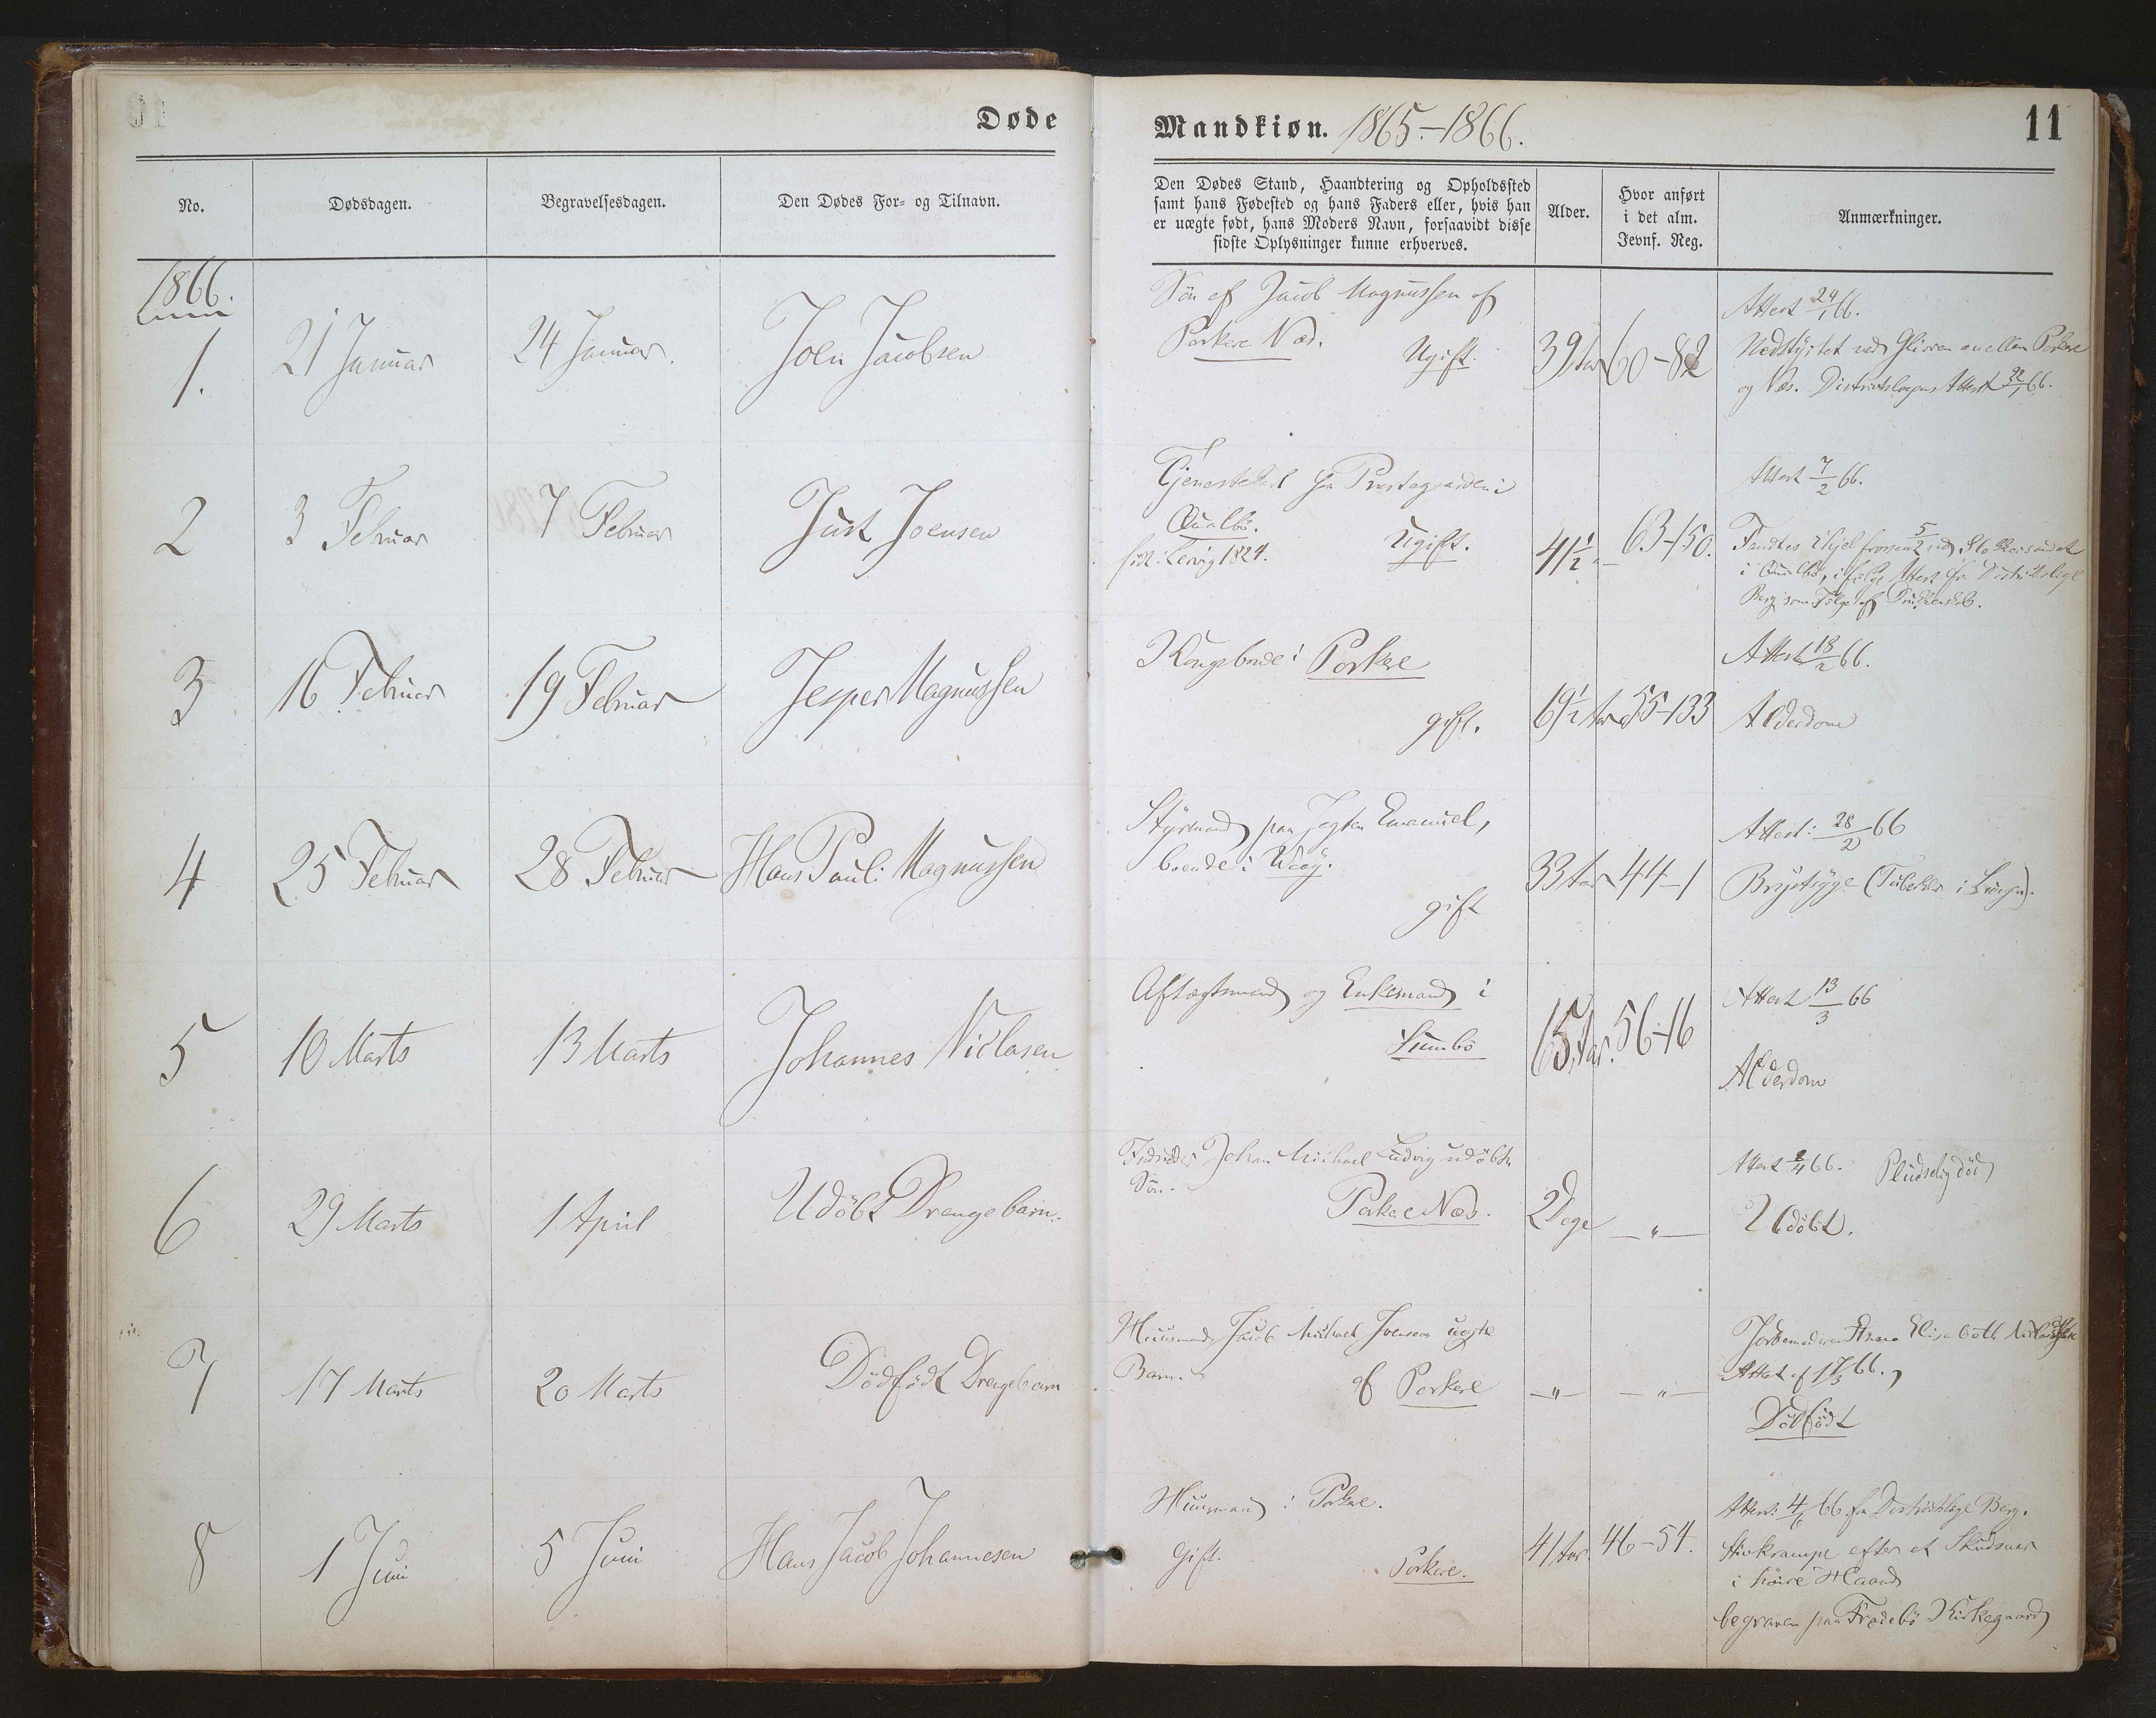 Døde
Mandkiøn. 1865.-1866.
11
No.
Dødsdagen.
Begravelsesdagen.
Den Dødes For- og Tilnavn.
Den Dødes Stand, Haandtering og Opholdssted
samt hans Fødested og hans Faders eller, hvis han
er uægte født, hans Moders Navn, forsaavidt disse
sidste Oplysninger kunne erhverves.
Alder.
Hvor anført
i det alm.
Jevnf. Reg.
Anmærkninger.
1866.
1.
21 Januar
24 Januar.
Joen Jacobsen
Søn af Jacob Magnussen af
Porkere Næs.
Ugift.
39 Aar
60-82
Attest 24/1 66.
Nedstyrtet ved Glivren mellem Porkere
og Næs. Districtslægens Attest 22/1 66.
2
3 Februar
7 Februar
Just Joensen
Tjenestekarl paa Præstegaarden i
Qualbø.
født i Lervig 1824.
Ugift.
41½
63-150.
Attest 7/2 66.
Fandtes ihjelfrossen 5/2 ved
i Qualbø, ifølge Attest fra Districtslæge
Berg som Følge af Drukkenskab.
3
16 Februar
19 Februar
Jesper Magnussen
Kongsbonde i Porkere
gift.
69½ Aar
55-133
Attest 18/2 66.
Alderdom
4
25 Februar
28 Februar
Hans Pauli Magnussen
Styrmand paa Jagten Emanuel,
boende i Waag.
gift
33 Aar
44-1
Attest: 28/2 66
Brystsyge (Tuberkler i Lungen).
5
10 Marts
13 Marts
Johannes Niclasen
Aftægtsmand og Enkemand i
Sumbø
65 Aar.
56-16
Attest 13/3 66
Alderdom
6
29 Marts
1 April
Udøbt Drengebarn.
Johan Michael Ludvig udøbte
Søn.
Porkere Næs.
2 Dage
-"-
Attest 2/4 66. Pludselig død
Udøbt.
7
17 Marts
20 Marts
Dødfødt Drengebarn
Huusmand Jacob Michael Joensens ægte
Barn.
af Porkere
-"-
-"-
Jordemoderen Anna Elisabeth
Attest af 17/3 66.,
Dødfødt
8
1 Juni
5 Juni
Hans Jacob Johannesen
Huusmand i Porkere.
Gift.
Porkere.
41 Aar
46-54.
Attest: 4/6 66 fra Districtslæge Berg.
Stivkrampe efter et Skudsaar
i høire Haand
begraven paa Frodebø Kirkegaard